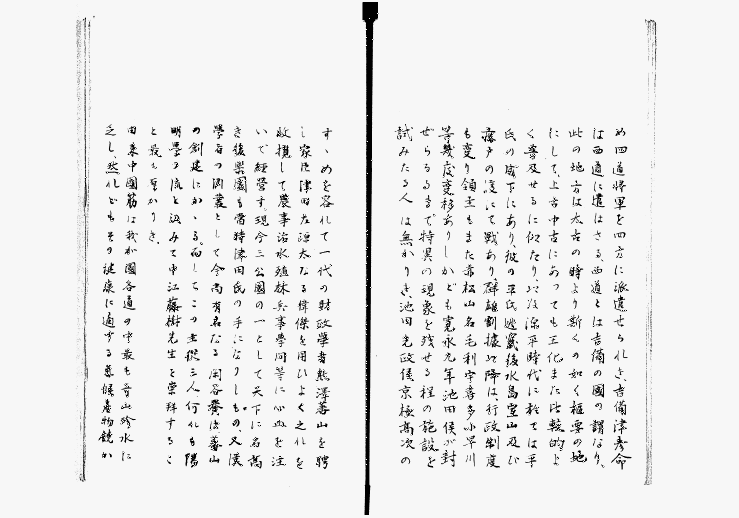 め四道将軍を四方に派遣せられき、吉備津彦命
は西道に遣はさる、西道とは吉備の國の謂なり、
此の地方は太古の時より斯くの如く枢要の地
にして、上古中古にあつても王化また比較的よ
く普及せるに似たり、次は源平時代に於ては平
氏の威下にあり、彼の平氏逃竄後水島室山及び
藤戸の渡にて戦あり、群雄割據以降は、行政制度
も変り領主もまた赤松山名毛利宇喜多小早川
等幾度変移ありしかども寛永九年池田侯が封
せらるるまで、特異の現象を残せる程の施設を
試みたる人は無かりき、池田光政侯京極高次の
すゝめを容れて一代の財政學者熊澤蕃山を聘
し家臣津田左源太なる偉傑を用ひよく之れを
收攬して農事治水殖林兵事學問等に心血を注
いで経営す、現今三公園の一として天下に名高
き後樂園も當時津田氏の手になりしもの、又漢
學者の淵叢として今尚有名なる閑谷黌は蕃山
の創建にかゝる、而してこの主従三人、何れも陽
明學の流を汲みて中江藤樹先生を崇拝するこ
と最も篤かりき、
由来中國筋は我が國各道の中最も奇山珍水に
乏し、然れどもその健康に適する気候産物饒か